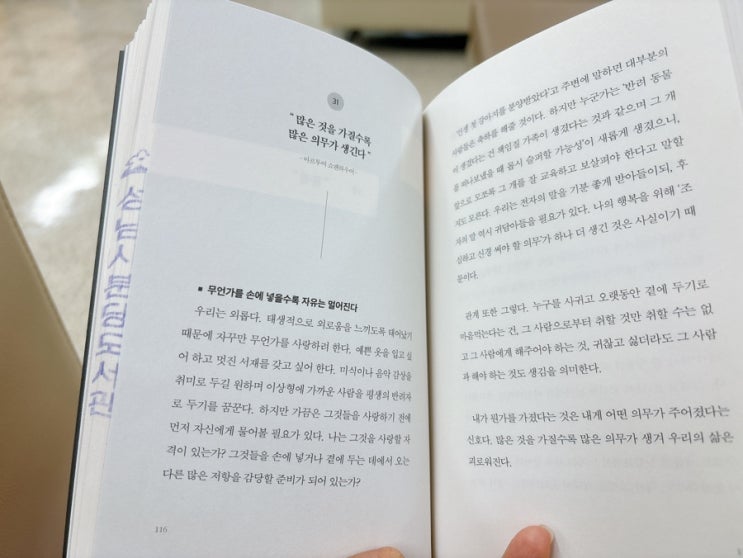 31
“많은 것을 가질수록
많은 의무가 생긴다”
- 아르투어 쇼펜하우어 -
■ 무언가를 손에 넣을수록 자유는 멀어진다
우리는 외롭다. 태생적으로 외로움을 느끼도록 태어났기
때문에 자꾸만 무언가를 사랑하려 한다. 예쁜 옷을 입고 싶
어 하고 멋진 서재를 갖고 싶어 한다. 미식이나 음악 감상을
취미로 두길 원하며 이상형에 가까운 사람을 평생의 반려자
로 두기를 꿈꾼다. 하지만 가끔은 그것들을 사랑하기 전에
먼저 자신에게 물어볼 필요가 있다. 나는 그것을 사랑할 자
격이 있는가? 그것들을 손에 넣거나 곁에 두는 데에서 오는
다른 많은 저항을 감당할 준비가 되어 있는가?
116
'인생 첫 강아지를 분양받았다'고 주변에 말하면 대부분의
사람들은 축하를 해줄 것이다. 하지만 누군가는 '반려 동물
이 생겼다는 건 책임질 가족이 생겼다는 것과 같으며 그 개
를 떠나보냈을 때 몹시 슬퍼할 가능성'이 새롭게 생겼으니,
앞으로 모쪼록 그 개를 잘 교육하고 보살펴야 한다고 말할
지도 모른다. 우리는 전자의 말을 기분 좋게 받아들이되, 후
자의 말 역시 귀담아들을 필요가 있다. 나의 행복을 위해 '조
심하고 신경 써야 할 의무가 하나 더 생긴 것은 사실이기 때
문이다.
관계 또한 그렇다. 누구를 사귀고 오랫동안 곁에 두기로
마음먹는다는 건, 그 사람으로부터 취할 것만 취할 수는 없
고 그 사람에게 해주어야 하는 것, 귀찮고 싫더라도 그 사람
과 해야 하는 것도 생김을 의미한다.
내가 뭔가를 가졌다는 것은 내게 어떤 의무가 주어졌다는
신호다. 많은 것을 가질수록 많은 의무가 생겨 우리의 삶은
괴로워진다.